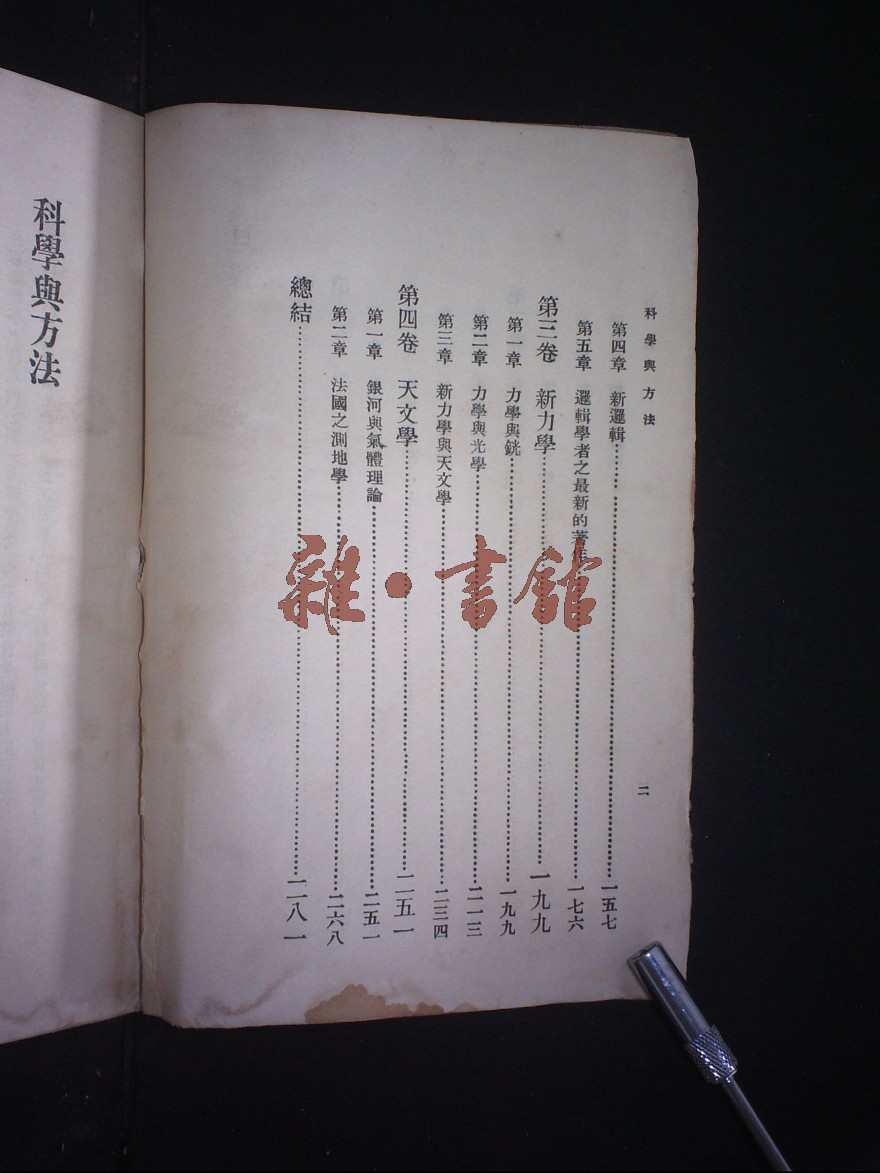 科學與方法
二
第四章 新邏輯 一五七
第五章 邏輯學者之最新的著作 一七六
第三卷 新力學 一九九
第一章 力學與銧 一九九
第二章 力學與光學 二一三
第三章 新力學與天文學 二三四
第四卷 天文學 二五一
第一章 銀河與氣體理論 二五一
第二章 法國之測地學 二六八
總結 二八一
科學與方法
雜·書館